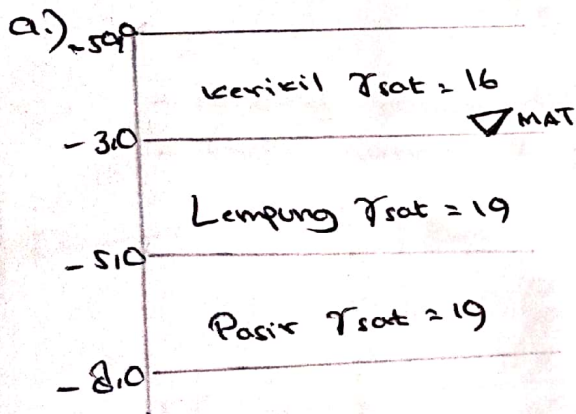 a.)
kerikil γsat = 16
MAT
- 3,0
Lempung γsat = 19
- 5,0
Pasir γsat = 19
- 8,0